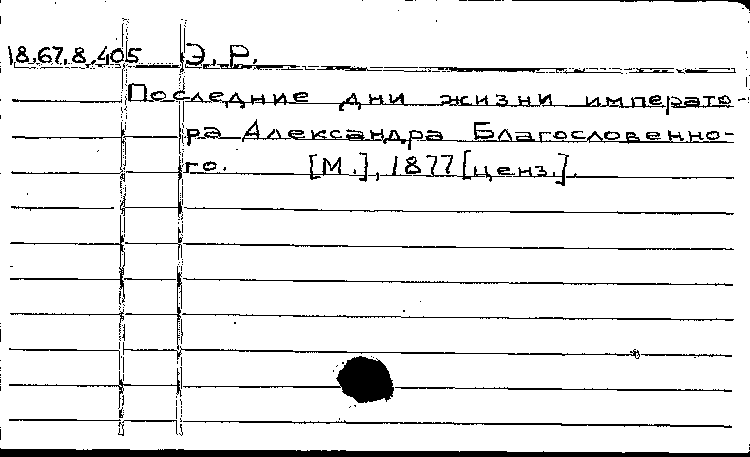 18.67.8.405 Э. Р.
Последние дни жизни императо-
ра Александра Благословенно-
го. [М.], 1877 [ценз.].